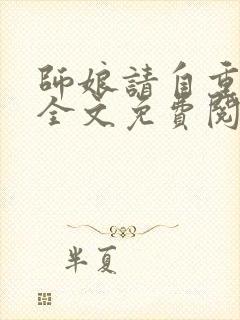 師娘請自重
全文免費閱
半夏